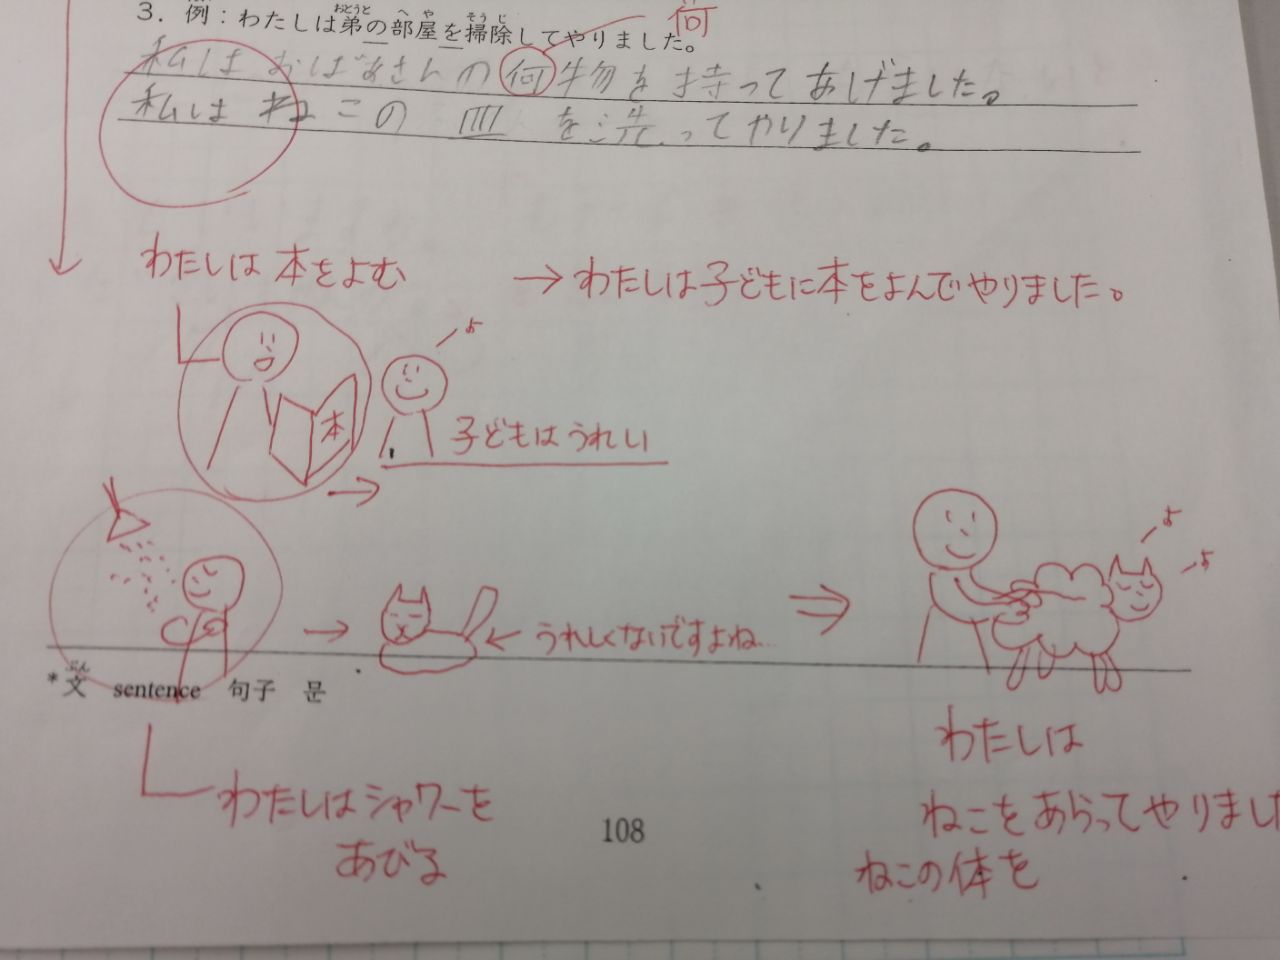 3. 例：わたしは弟の部屋を掃除してやりました。
おとうと へ や そうじ
何
私は おばあさん の 何物を 持って あげました。
私は ねこ の 皿 を 洗ってやりました。
わたしは 本をよむ
→ わたしは子どもに本をよんでやりました。
♪
本
子どもはうれしい
→
→
← うれしくないですよね…
⇒
♪
♪
ぶん
*文 sentence 句子 문
わたしは
わたしはシャワーを
あびる
108
ねこをあらってやりました
ねこの体を